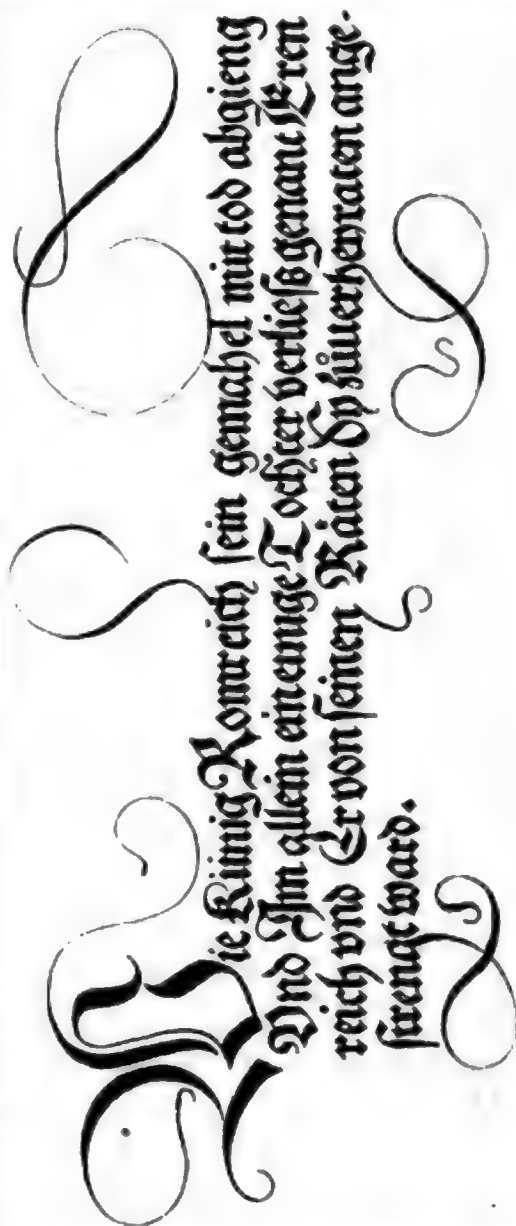 Wie Künig Romreich sein gemahel mit tod abgieng
Vnd Im allein ein ainige Tochter verließ genant Ernreich vnd Er von seinen Räten Sy zůuerheyraten angestrengt ward.